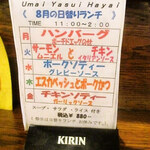 Umai Yasui Hayai
8月の日替りランチ
TIME 11:00~2:00
月 ハンバーグ
ポーチドエッグのせ
火 サーモン と チキン
ムニエル
水 ポークソティー
グレビーソース
木 エスカベッシュとポークカツ
金 チキンソテー
ガーリックソース
スープ・サラダ・ライス付き
税込 ¥880-
KIRIN